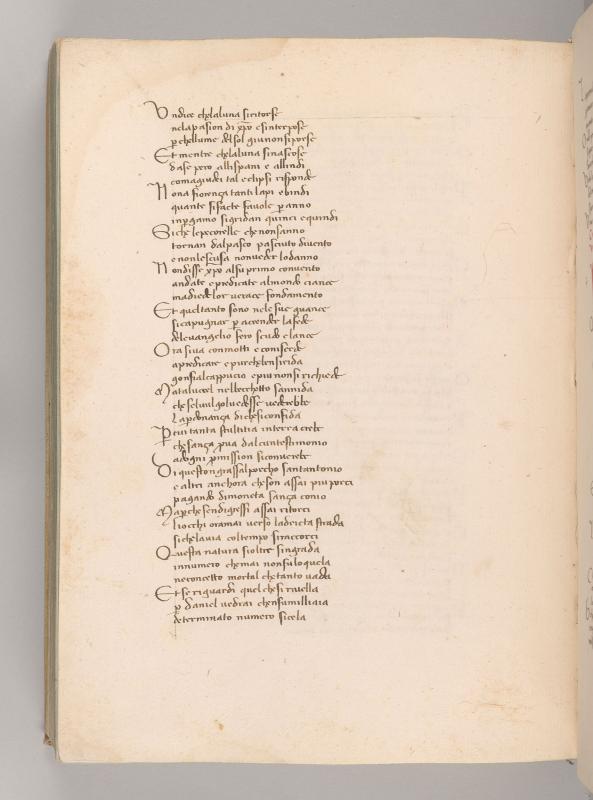 Vndice chelaluna siritorse
nelapasion di xpo esinterpose
p chellume delsol giunonsiporse
Et mentre chelaluna sinascose
dase pero allispani e allindi
comagiudei tal eclipsi risponde
Nona fiorença tanti lapi ebindi
quante sifacte favole p anno
inpgamo sigridan quinci equindi
Siche lepecorelle chenonsanno
tornan dalpasco pasciute divento
enonlescusa nonveder lodanno
Nondisse xpo alsuprimo convento
andate epredicate almondo ciance
madiedelor verace fondamento
Et queltanto sono nele sue guance
sicapugnar p accender lafede
delevangelio fero scudo elance
Ora siva conmotti econiscede
apredicare epurchebensirida
gonfialcappuccio epiu nonsi richiede
Mataluccel nelbecchetto sannida
cheselvulgoluedesse vederebbe
laperdonança dichesiconfida
P cui tanta stultitia interra crebbe
chesança pva dalcuntestimonio
adogni pmission siconverebbe
Di questongrassalporcho santantonio
e altri anchora cheson assai piu porci
pagando dimoneta sança conio
Maperchesendigressi assai ritorci
liocchi oramai verso ladricta strada
sichelavia coltempo siraccorci
Questa natura sioltre singrada
innumero chemai nonfu loquela
neconcetto mortal chetanto vada
Et se riguardi quel chesirivella
p daniel vedrai chensumilliaia
determinato numero sicela